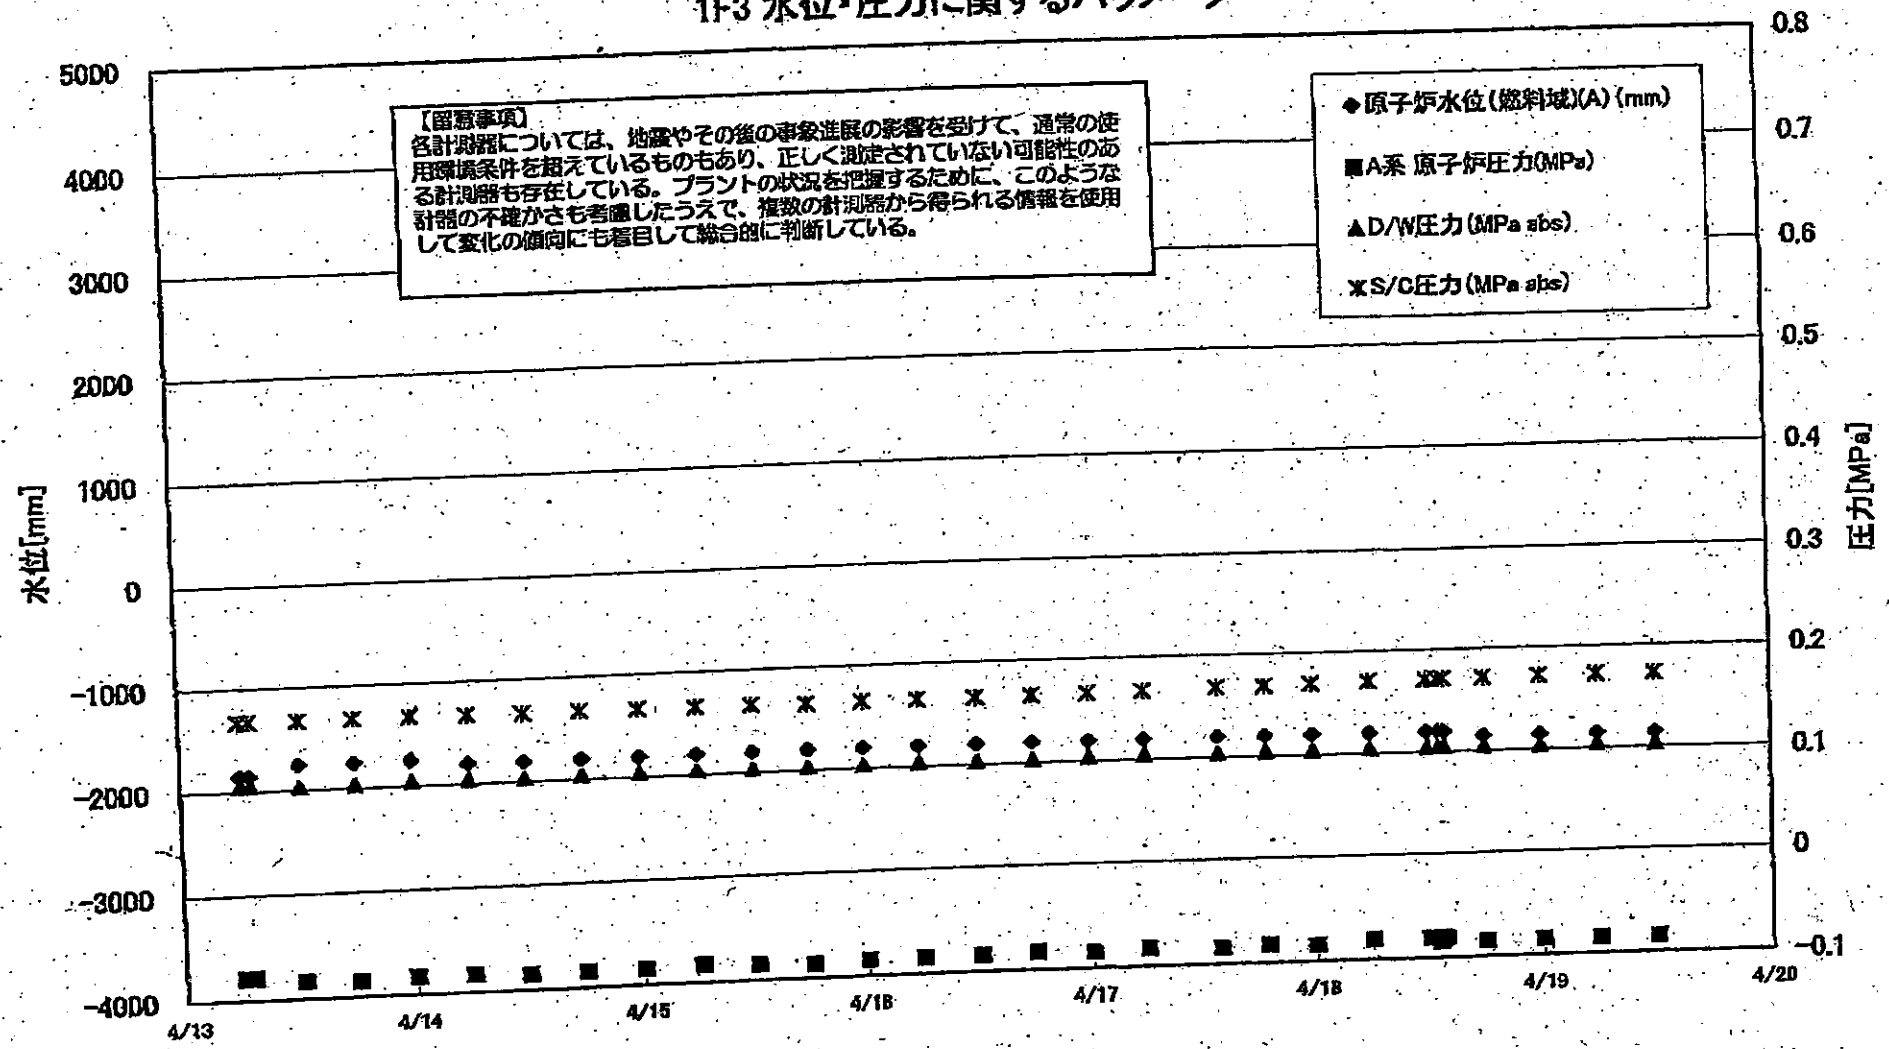 1F3 水位・圧力に関するパラメータ
【留意事項】
各計測器については、地震やその後の事象進展の影響を受けて、通常の使
用環境条件を超えているものもあり、正しく測定されていない可能性のあ
る計測器も存在している。プラントの状況を把握するために、このような
計器の不確かさも考慮したうえで、複数の計測器から得られる情報を使用
して変化の傾向にも着目して総合的に判断している。
◆原子炉水位(燃料域)(A)(mm)
■A系 原子炉圧力(MPa)
▲D/W圧力(MPa abs)
S/C圧力(MPa abs)
水位[mm]
5000
4000
3000
2000
1000
0
-1000
-2000
-3000
-4000
圧力[MPa]
0.8
0.7
0.6
0.5
0.4
0.3
0.2
0.1
0
-0.1
4/13
4/14
4/15
4/16
4/17
4/18
4/19
4/20